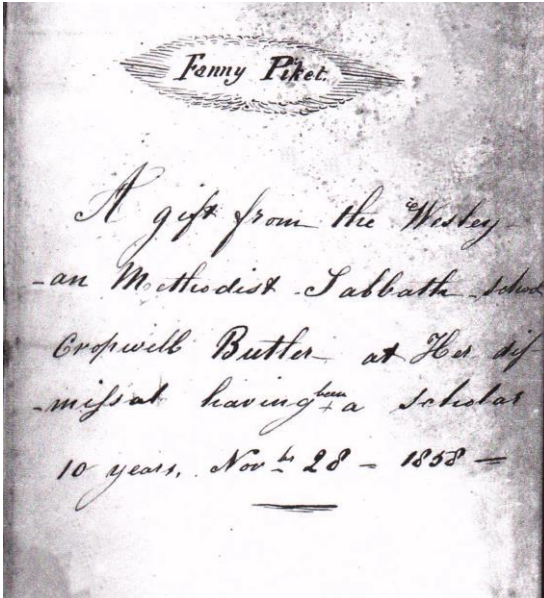 Fanny Piket.
A gift from the Wesley-
-an Methodist Sabbath School
Cropwell Butler at Her dis
-missal having been a Scholar
10 years. Novbr 28 - 1858 =